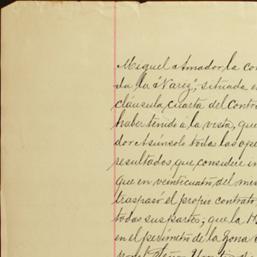 Miguel Amador, la co
da la "Narez", situada e
cláusula cuarta del Contr
haber tenido a la vista, que
dor Asúnsolo todas las ope
resultados, que considere in
que en veinticuatro del mes
traspasó el propio contrato
todas sus partes; que la M
en el perímetro de la Zona